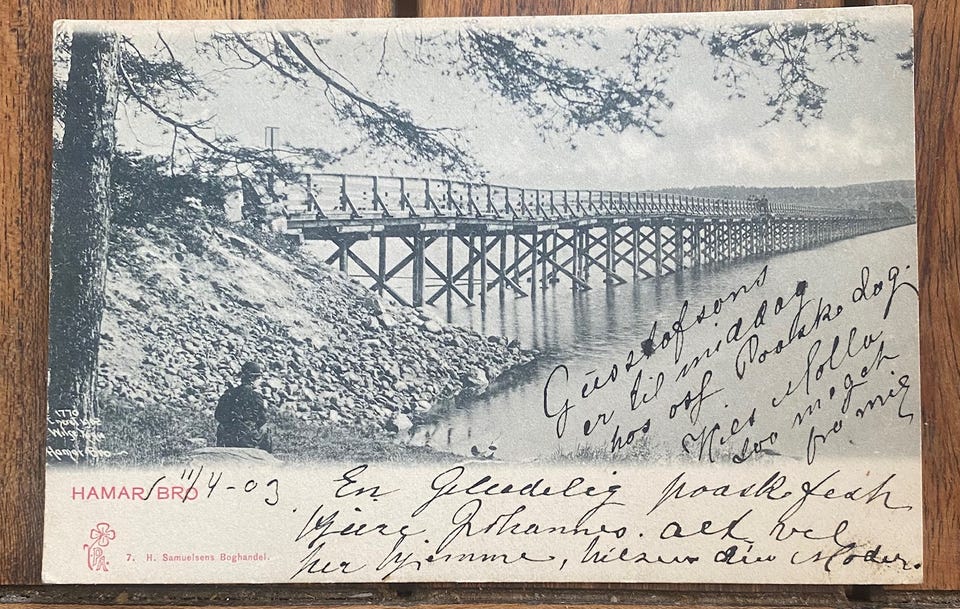 Gustafsons
er til middag
hos oss Paaske dag.
Hils Molla
saa meget
fra mig
1770
Hamar Bro
HAMAR BRO
11/4-03
En Glædelig paaskefest
Kjære Johannes. alt vel
her hjemme, hilsen din Moder.
7. H. Samuelsens Boghandel.